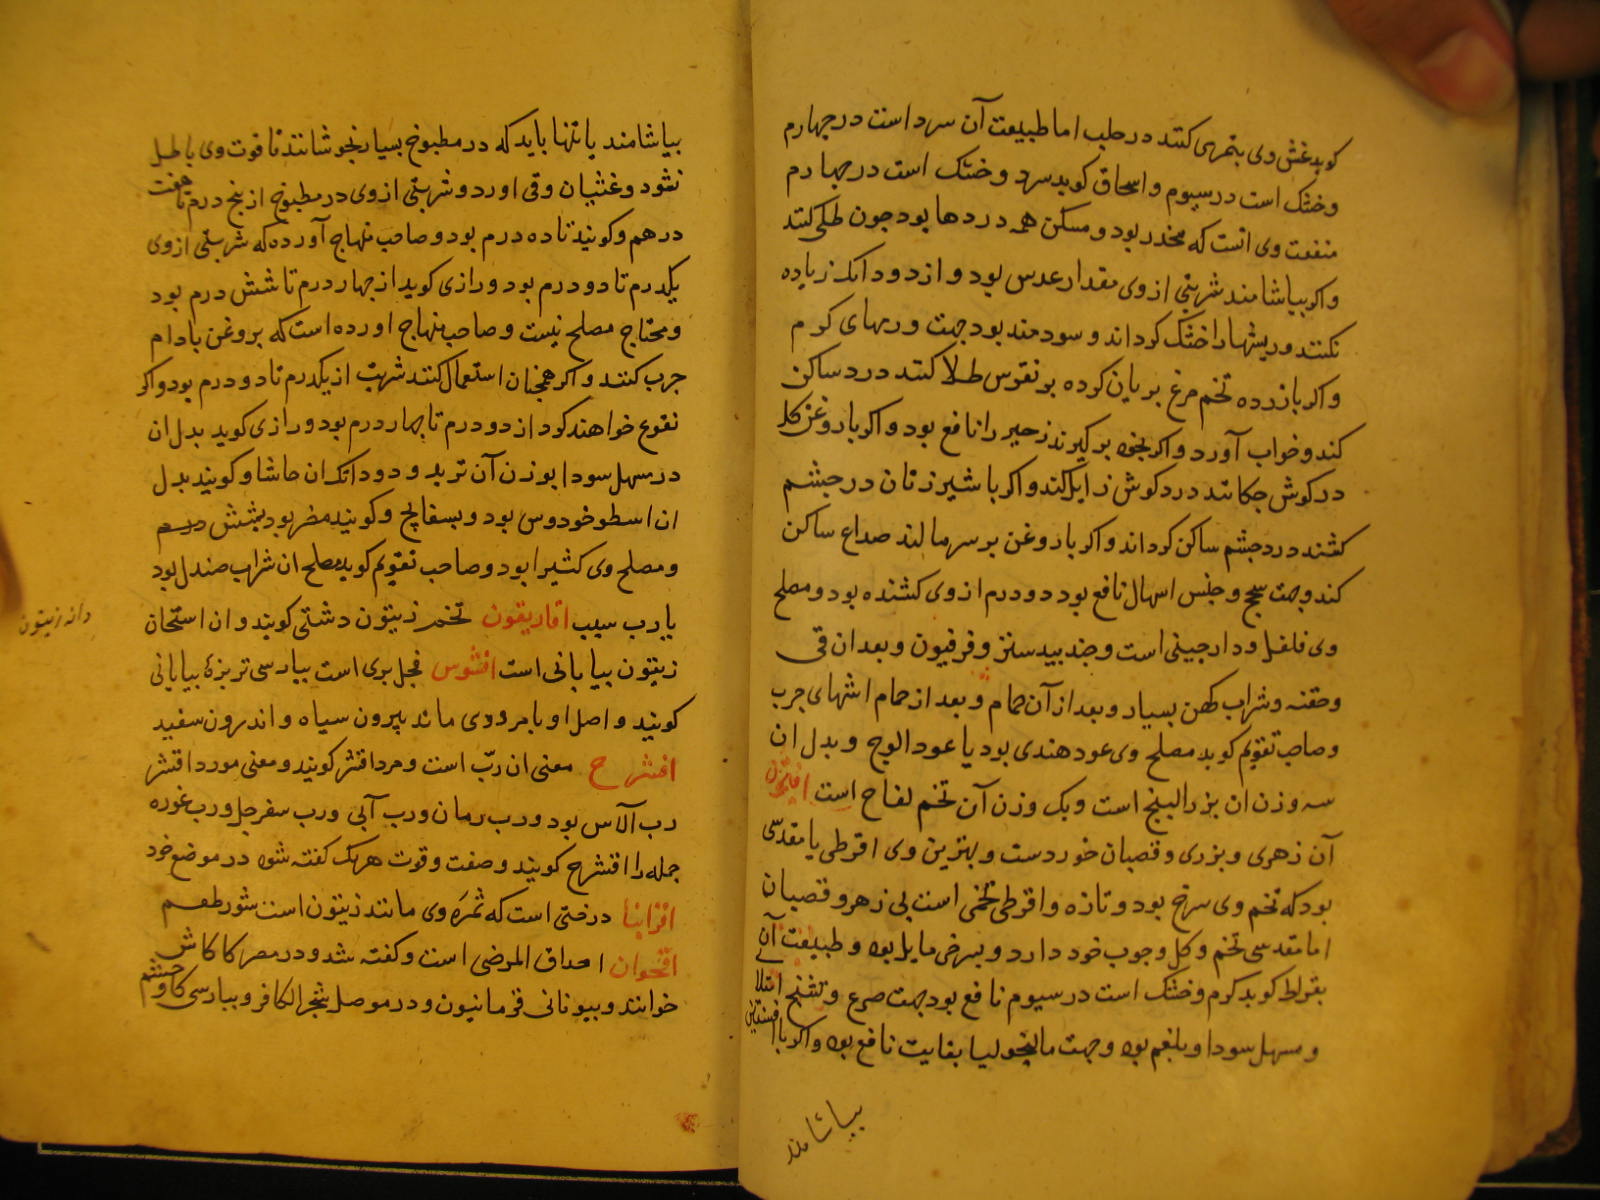 کوید غش وی بتمرهی کنند در حلب اما طبیعت آن سرد است در جهارم
وخشک است در سیوم واسحاق کوید سرد وخشک است در جهارم
منفعت وی انست که مخدر بود ومسکن همه دردها بود جون طلی کنند
واکر بیاشامند شربتی ازوی مقدار عدس بود و از دو دانک زیاده
نکنند وریشها را خشک کرداند و سودمند بود جهت ورمهای کرم
واکر بازرده تخم مرغ بریان کرده بر نقرس طلا کنند درد ساکن
کند وخواب آورد واکر بخود برکیرند زحیر را نافع بود واکر باروغن کل
در کوش جکانند درد کوش زایل کند واکر با شیر زنان در جشم
کشند درد جشم ساکن کرداند واکر باروغن بر سر مالند صداع ساکن
کند وجهت سحج وجنس اسهال نافع بود دو درم ازوی کشنده بود ومصلح
وی فلفل ودارجینی است وجندبیدستر وفرفیون وبعد ان قی
وحقنه وشراب کهن بسیار وبعد از آن حمام وبعد از حمام اشهای جرب
وصاحب تقویم کوید مصلح وی عود هندی بود یا عود الوج وبدل ان
سه وزن ان بزر البنج است ویک وزن آن تخم لفاح است افیثمون
آن زهری وبزری وقصبان خوردست وبهترین وی اقرطی یا مقدسی
بود که تخم وی سرخ بود وتازه واقرطی تخمی است بی زهر وقصبان
اما مقدسی تخم وکل وجوب خود دارد وبسرخی مایل بود وطبیعت آن
بقراط کوید کرم وخشک است در سیوم نافع بود جهت صرع وتشنج امتلا
ومسهل سودا وبلغم بود وجهت مالیخولیا بغایت نافع بود واکر با افسنتین
بیاشامند
بیاشامند یا تنها باید که در مطبوخ بسیار نجوشانند تا قوت وی باطل
نشود وغثیان وقی اورد وشربتی ازوی در مطبوخ از پنج درم تا هفت
درهم وکویند تا ده درم بود وصاحب منهاج آورده که شربتی ازوی
یکدرم تا دو درم بود ورازی کوید از جهار درم تا شش درم بود
ومحتاج مصلح نیست وصاحب منهاج اورده است که بروغن بادام
جرب کنند واکر همجنان استعمال کنند شربت از یکدرم تا دو درم بود واکر
نقوع خواهند کرد از دو درم تا جهار درم بود ورازی کوید بدل ان
در مسهل سودا بوزن آن تربد ودو دانک ان حاشا وکویند بدل
ان اسطوخودوس بود وبسفایج وکویند مضر بود بشش
ومصلح وی کثیرا بود وصاحب تقویم کوید مصلح ان شراب صندل بود
یا رب سیب اقاریقون تخم زیتون دشتی کویند وان استخان
زیتون بیابانی است افشوس فجل بری است بپارسی تربزهٔ بیابانی
کویند واصل او بامرودی ماند بیرون سیاه واندرون سفید
افشرج معنی ان ربّ است وم‍رداقشر کویند ومعنی مورد اقشر
رب الآس بود ورب رمان ورب آبی ورب سفرجل ورب غوره
جمله را اقشرج کویند وصفت وقوت هریک کفته شود در موضع خود
اقرانیا درختی است که ثمرهٔ وی مانند زیتون است شور طعم
اقحوان احداق المرضی است وکفته شد ودر مصر کاکاش
خوانند وبیونانی قرمانیون ودر موصل شجر الکافر وبپارسی کاوجشم
دانه زیتون